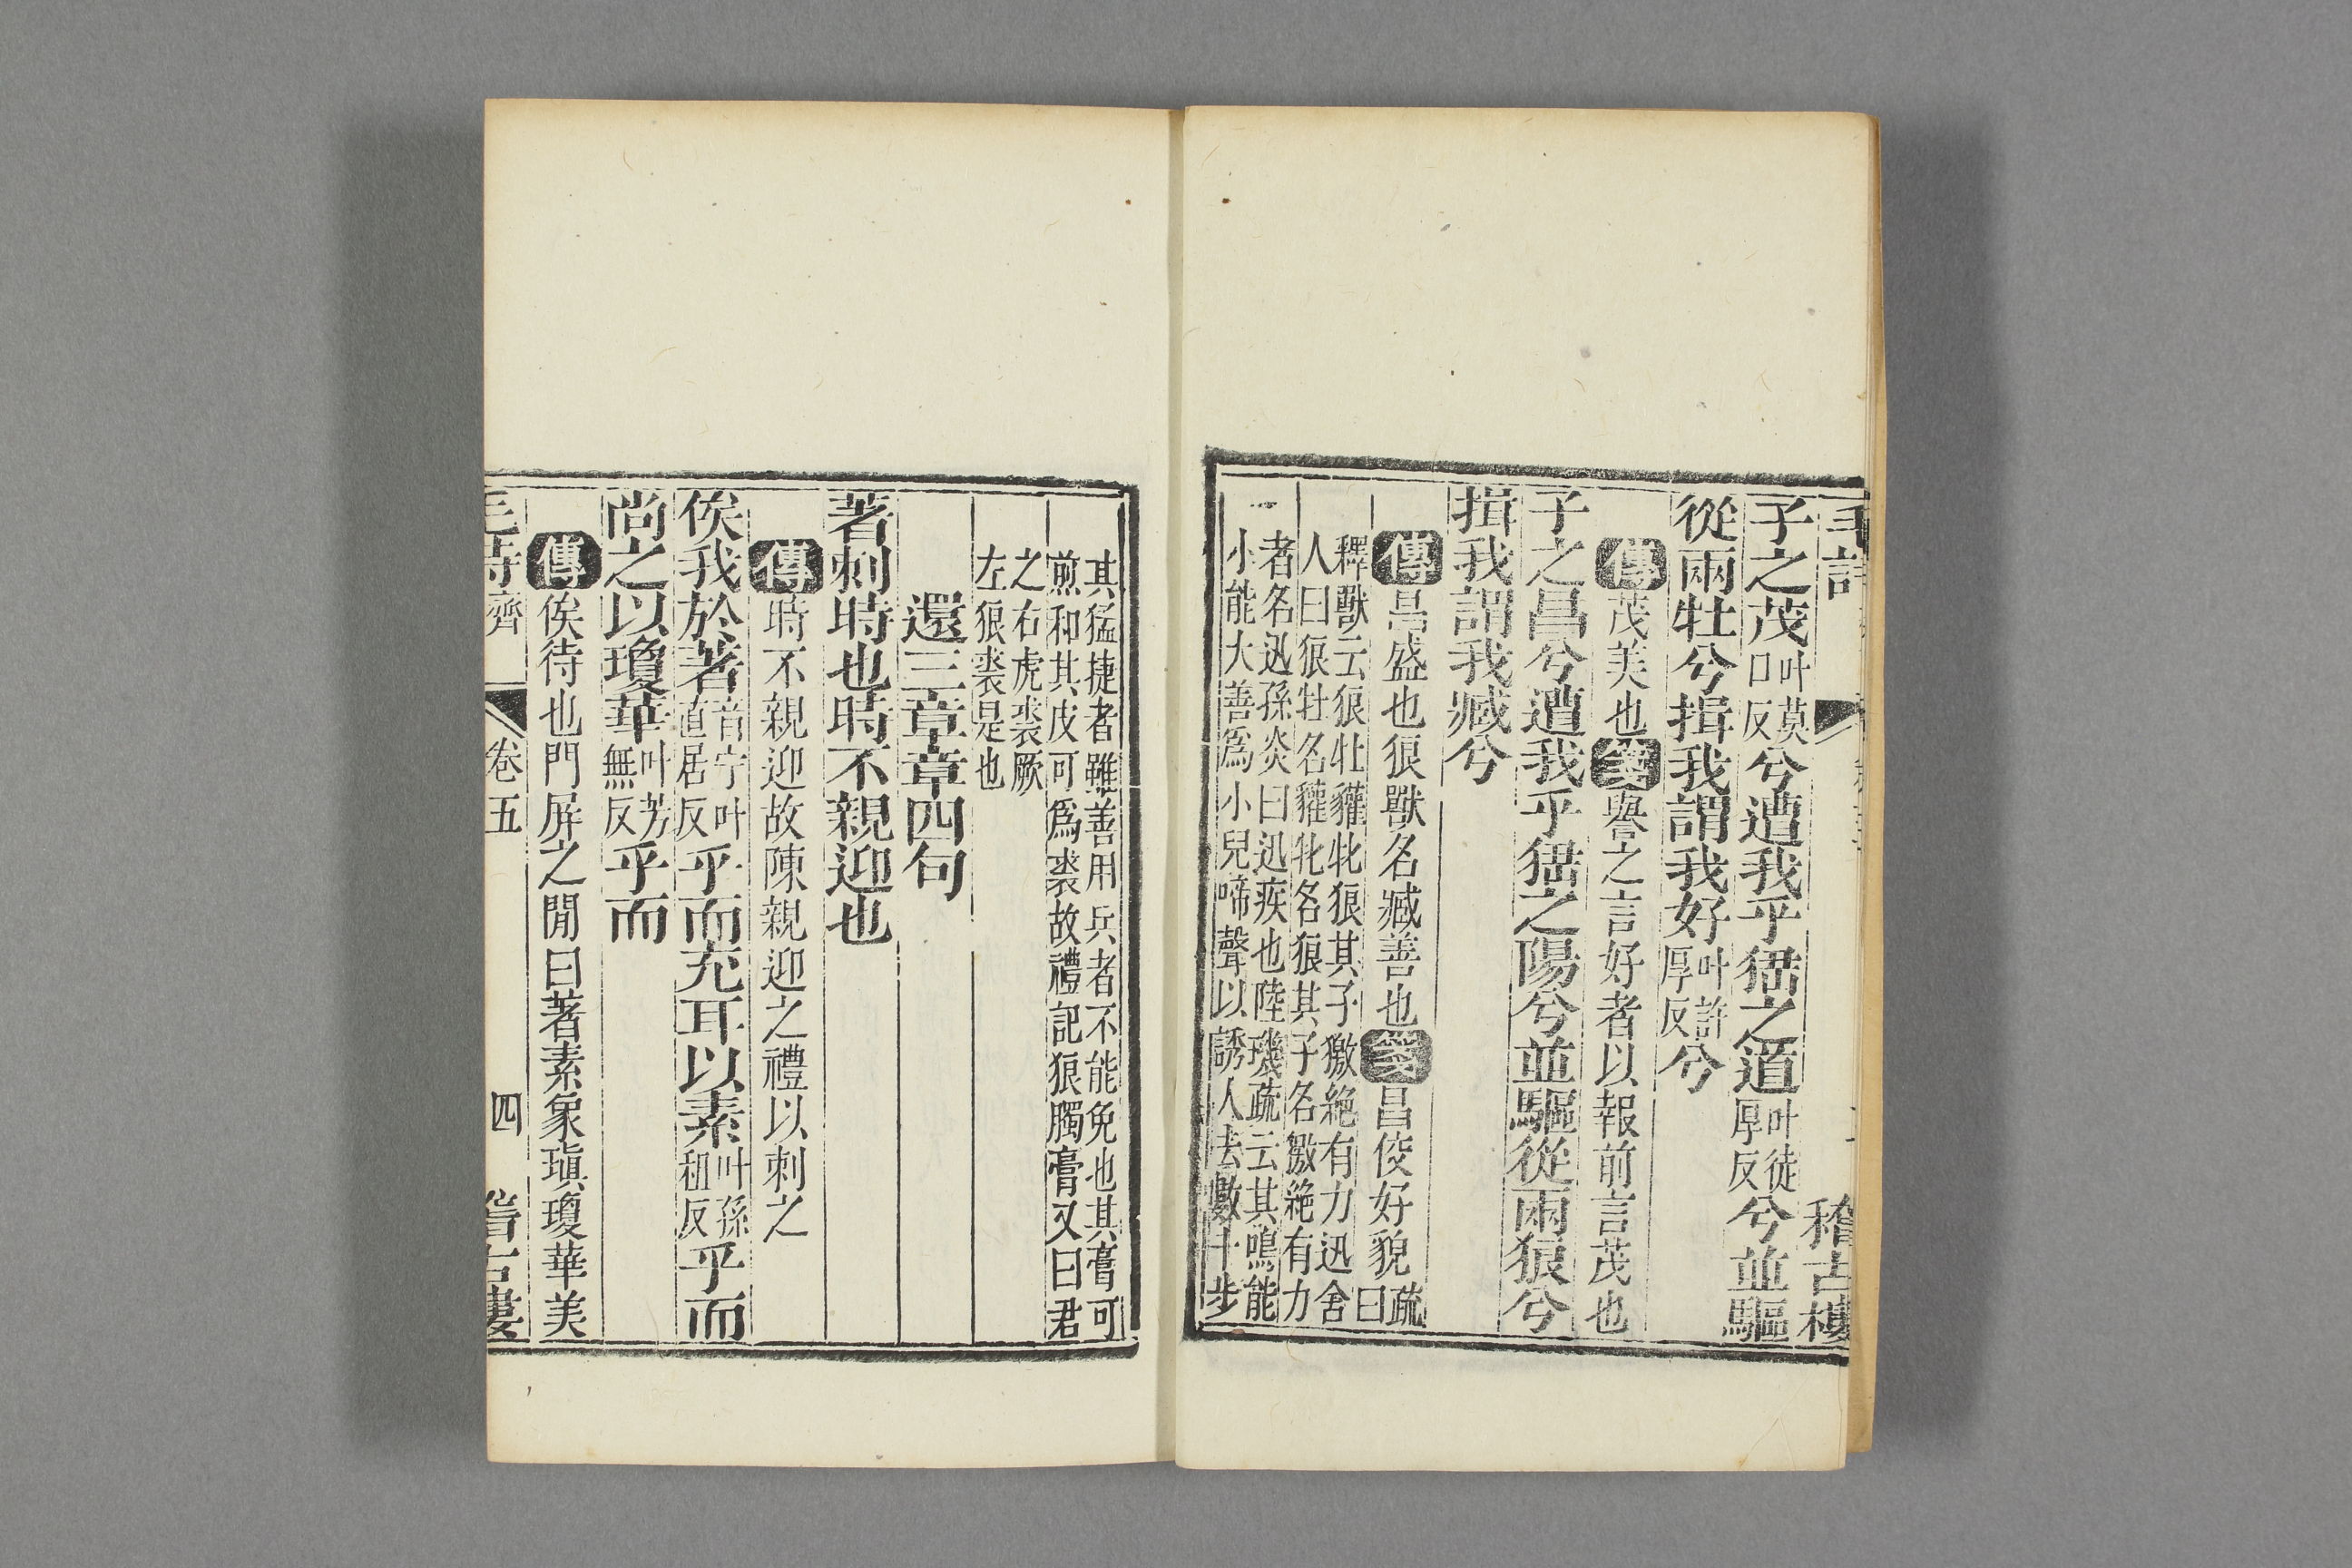 毛詩
稽古樓
子之茂叶莫口反兮遭我乎猺之道叶徒厚反兮並驅
從兩牡兮揖我謂我好叶許厚反兮
傳茂美也箋譽之言好者以報前言茂也
子之昌兮遭我乎猺之陽兮並驅從兩狼兮
揖我謂我臧兮
傳昌盛也狼獸名臧善也箋昌佼好貌疏曰
釋獸云狼牡貛牝狼其子獥絶有力迅舍
人曰狼牡名貛牝名狼其子名獥絶有力
者名迅孫炎曰迅疾也陸璣疏云其鳴能
小能大善爲小兒啼聲以誘人去數十步
其猛捷者雖善用兵者不能免也其膏可
煎和其皮可爲裘故禮記狼臅膏又曰君
之右虎裘厥
左狼裘是也
還三章章四句
著刺時也時不親迎也
傳時不親迎故陳親迎之禮以刺之
俟我於著音宁叶直居反乎而充耳以素叶孫租反乎而
尚之以瓊華叶芳無反乎而
傳俟待也門屏之閒曰著素象瑱瓊華美
毛詩齊 卷五 四 稽古樓